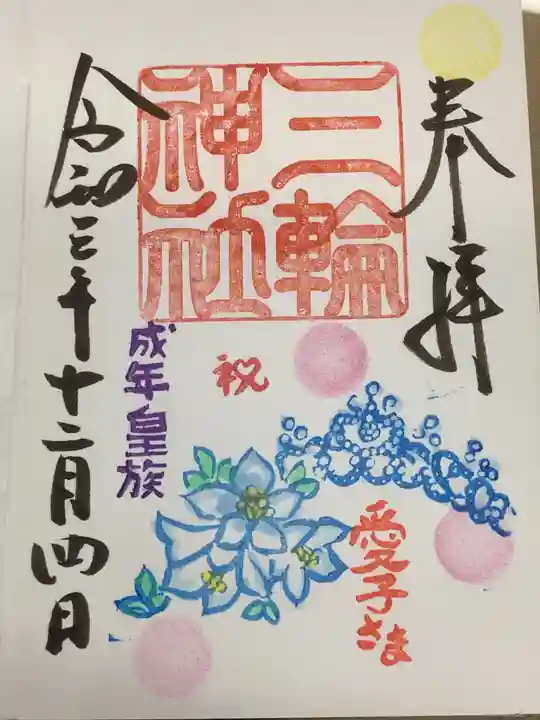 奉拝
三輪
神社
祝
愛子さま
成年皇族
令和三年十二月四日